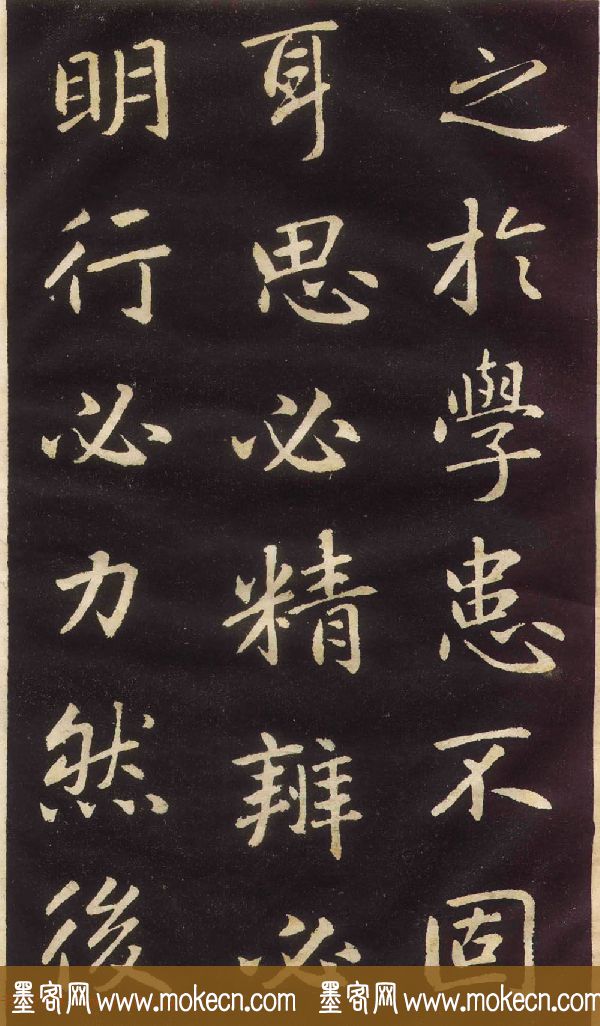 之於學患不固
耳思必精辨必
明行必力然後
墨客网 www.mokecn.com 墨客网 www.mokecn.com